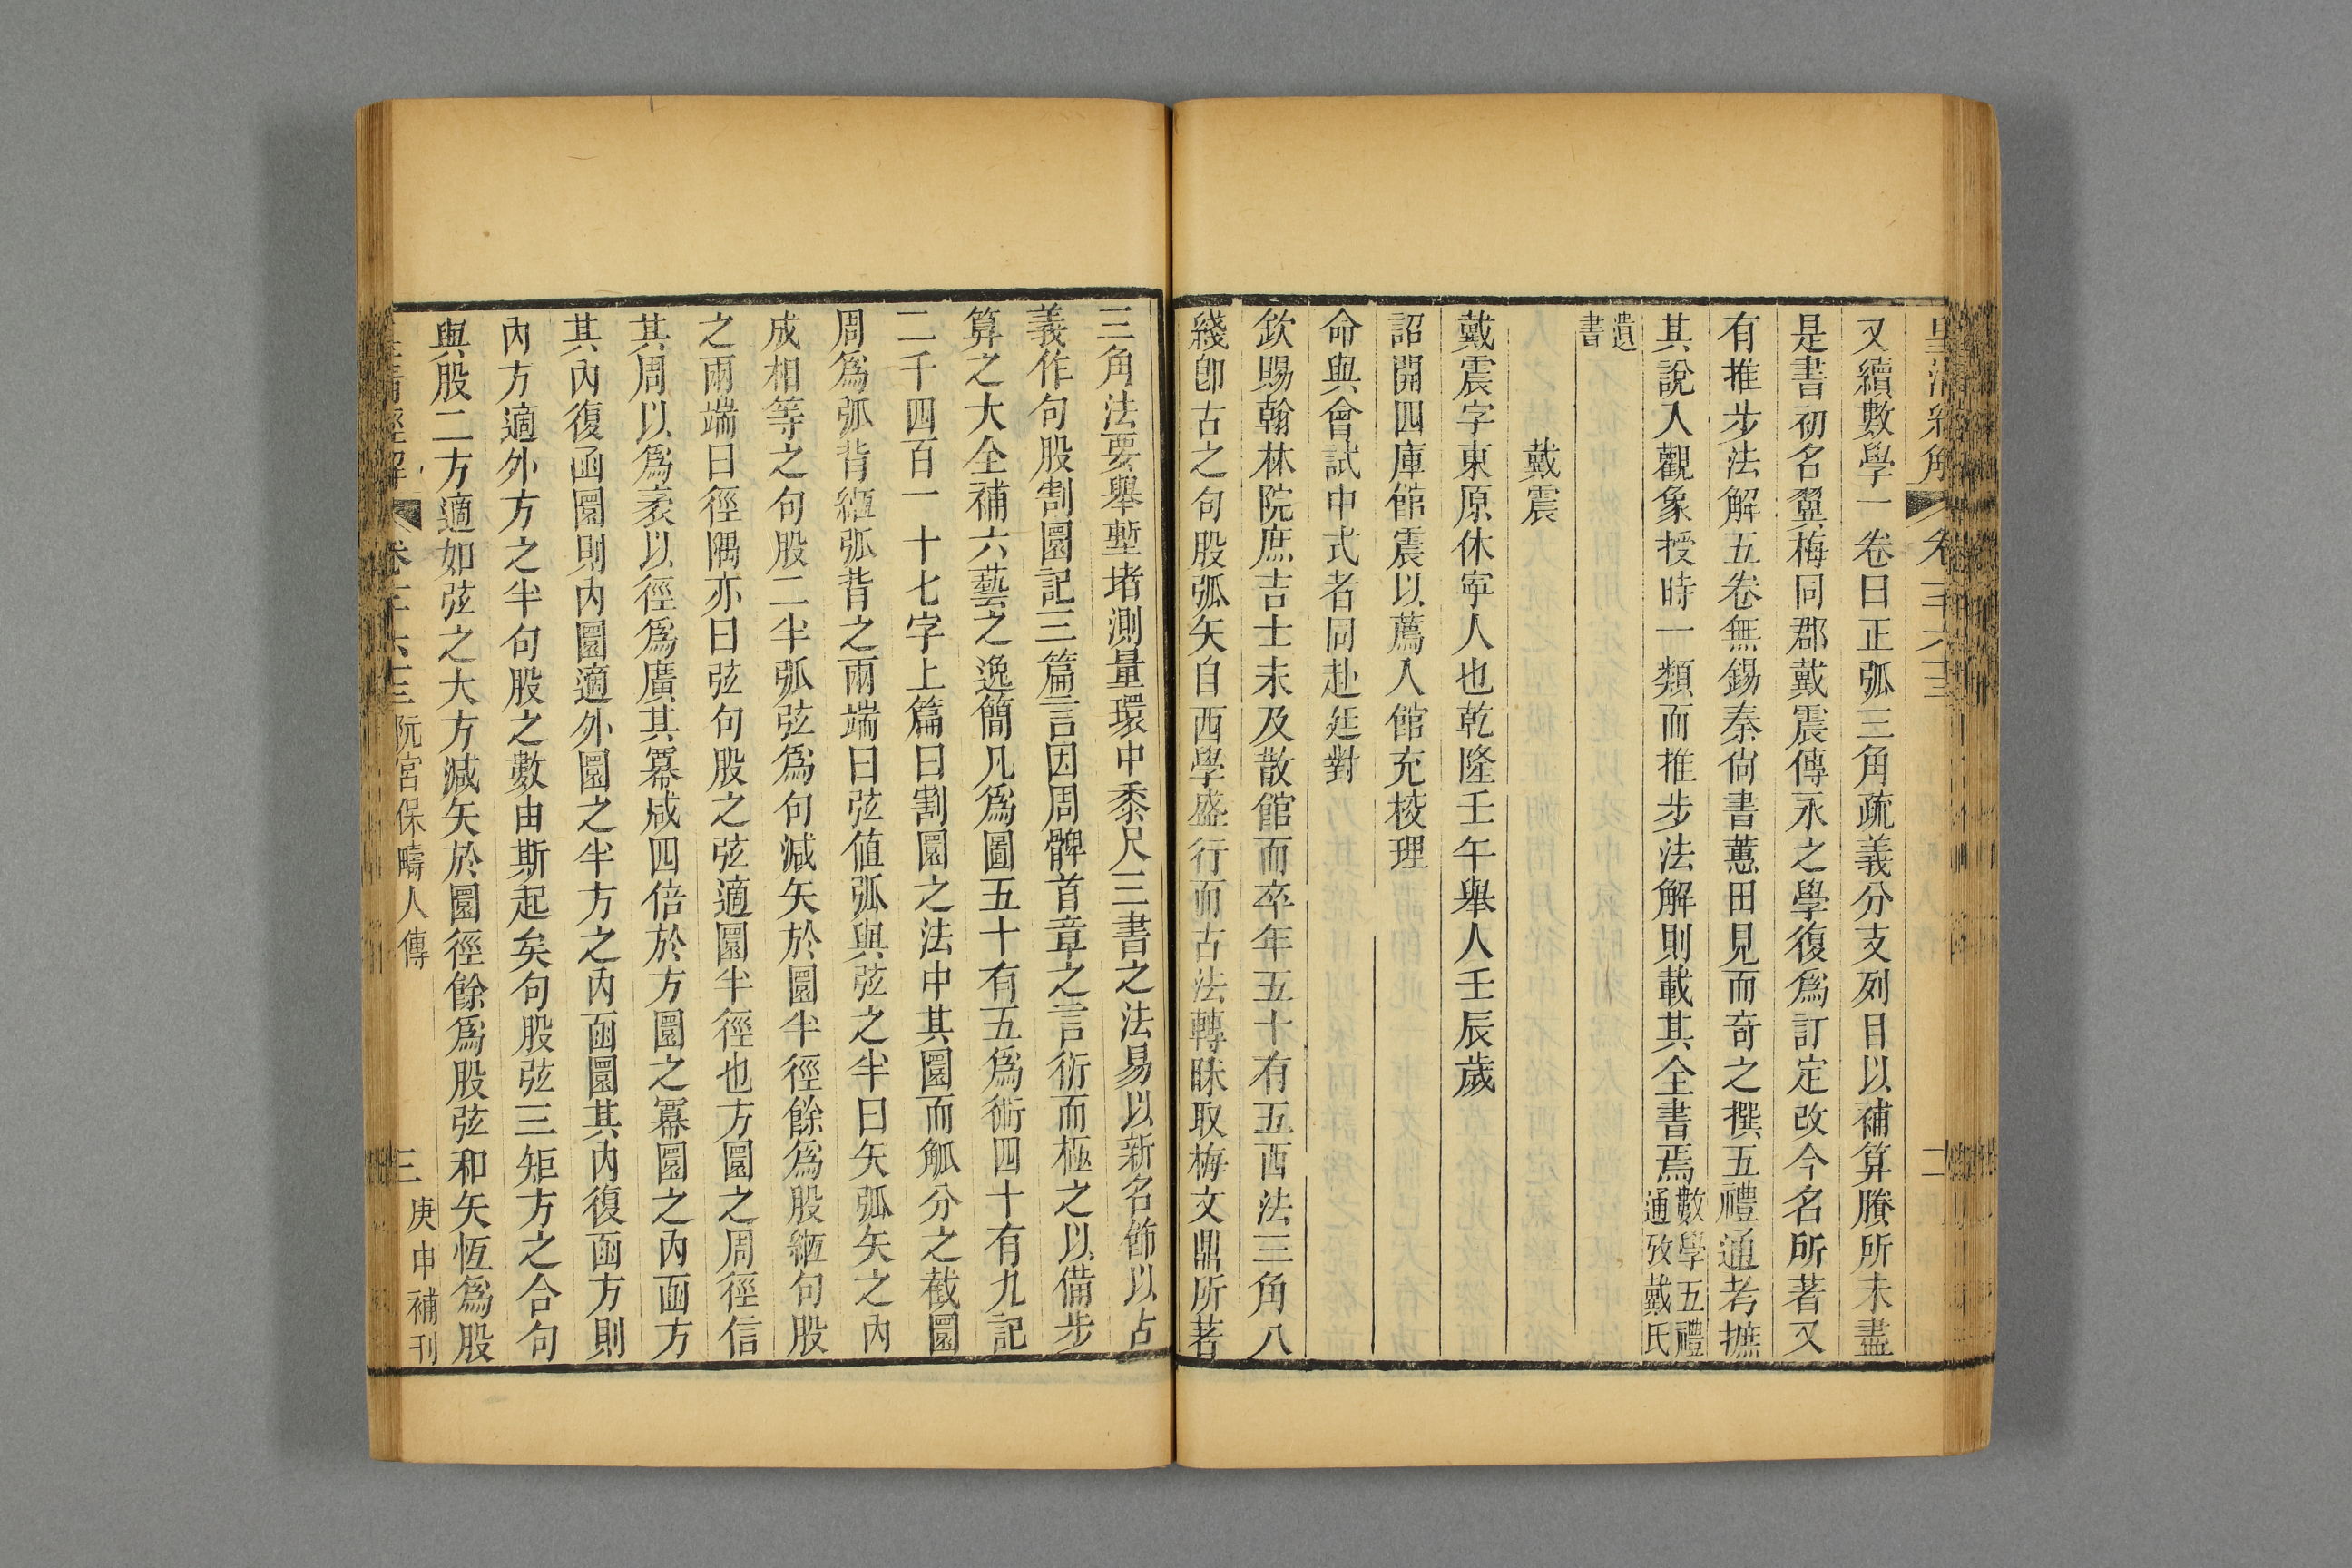 又續數學一卷曰正弧三角疏義分支列目以補算賸所未盡
是書初名翼梅同郡戴震傳永之學復爲訂定改今名所著又
有推步法解五卷無錫秦尚書蕙田見而奇之撰五禮通考摭
其說入觀象授時一類而推步法解則載其全書焉數學五禮通攷戴氏
遺書
戴震
戴震字東原休寧人也乾隆壬午舉人壬辰歲
詔開四庫館震以薦入館充校理
命與會試中式者同赴廷對
欽賜翰林院庶吉士未及散館而卒年五十有五西法三角八
綫卽古之句股弧矢自西學盛行而古法轉昧取梅文鼎所著
三角法要舉塹堵測量環中黍尺三書之法易以新名飾以古
義作句股割圜記三篇言因周髀首章之言衍而極之以備步
算之大全補六藝之逸簡凡爲圖五十有五爲術四十有九記
二千四百一十七字上篇曰割圜之法中其圜而觚分之截圜
周爲弧背縆弧背之兩端曰弦値弧與弦之半曰矢弧矢之內
成相等之句股二半弧弦爲句減矢於圜半徑餘爲股縆句股
之兩端曰徑隅亦曰弦句股之弦適圜半徑也方圜之周徑信
其周以爲袤以徑爲廣其冪咸四倍於方圜之冪圜之內函方
其內復函圜則內圜適外圜之半方之內函圜其內復函方則
內方適外方之半句股之數由斯起矣句股弦三矩方之合句
與股二方適如弦之大方減矢於圜徑餘爲股弦和矢恆爲股
皇清經解 卷 阮宮保疇人傳 三 庚申補刊